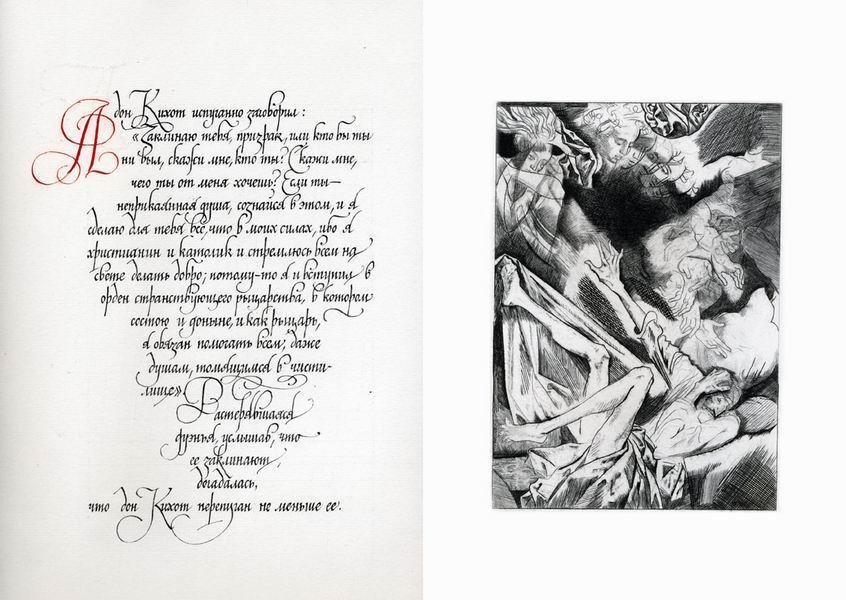 А дон Кихот испуганно заговорил:
«Заклинаю тебя, призрак, или кто бы ты
ни был, скажи мне, кто ты? Скажи мне,
чего ты от меня хочешь? Если ты —
неприкаянная душа, сознайся в этом, и я
сделаю для тебя всё, что в моих силах, ибо я
христианин и католик и стремлюсь всем на
свете делать добро; потому-то я и вступил в
орден странствующего рыцарства, в котором
состою и доныне, и как рыцарь,
я обязан помогать всем; даже
душам, томящимся в чисти-
лище». Растерявшаяся
дуэнья, услышав, что
её заклинают,
догадалась,
что дон Кихот перепуган не меньше её.